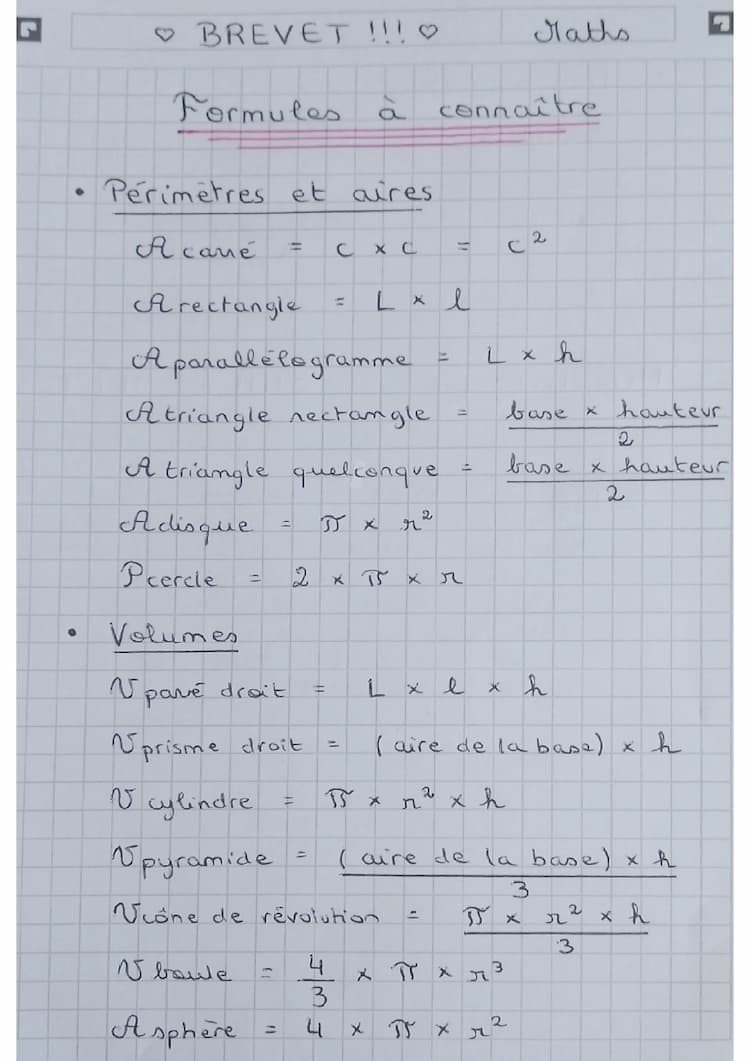 ♡ BREVET !!! ♡ Maths
Formules à connaître
• Périmètres et aires
A carré = c × c = c²
A rectangle = L × l
A parallélogramme = L × h
A triangle rectangle = base × hauteur / 2
A triangle quelconque = base × hauteur / 2
A disque = π × r²
P cercle = 2 × π × r
• Volumes
V pavé droit = L × l × h
V prisme droit = (aire de la base) × h
V cylindre = π × r² × h
V pyramide = (aire de la base) × h / 3
V cône de révolution = π × r² × h / 3
V boule = 4/3 × π × r³
A sphère = 4 × π × r²